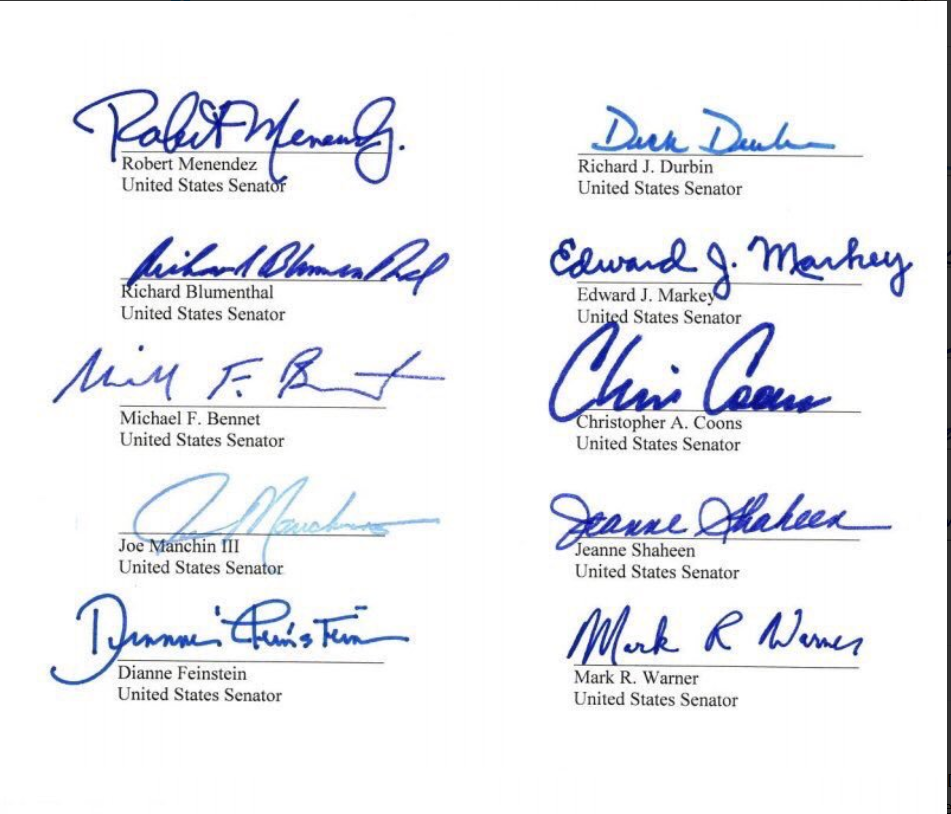 Robert Menendez
Robert Menendez
United States Senator
Dick Durbin
Richard J. Durbin
United States Senator
Richard Blumenthal
Richard Blumenthal
United States Senator
Edward J. Markey
Edward J. Markey
United States Senator
F. B
Michael F. Bennet
United States Senator
Chris Coons
Christopher A. Coons
United States Senator
Joe Manchin
Joe Manchin III
United States Senator
Jeanne Shaheen
Jeanne Shaheen
United States Senator
Dianne Feinstein
Dianne Feinstein
United States Senator
Mark R Warner
Mark R. Warner
United States Senator